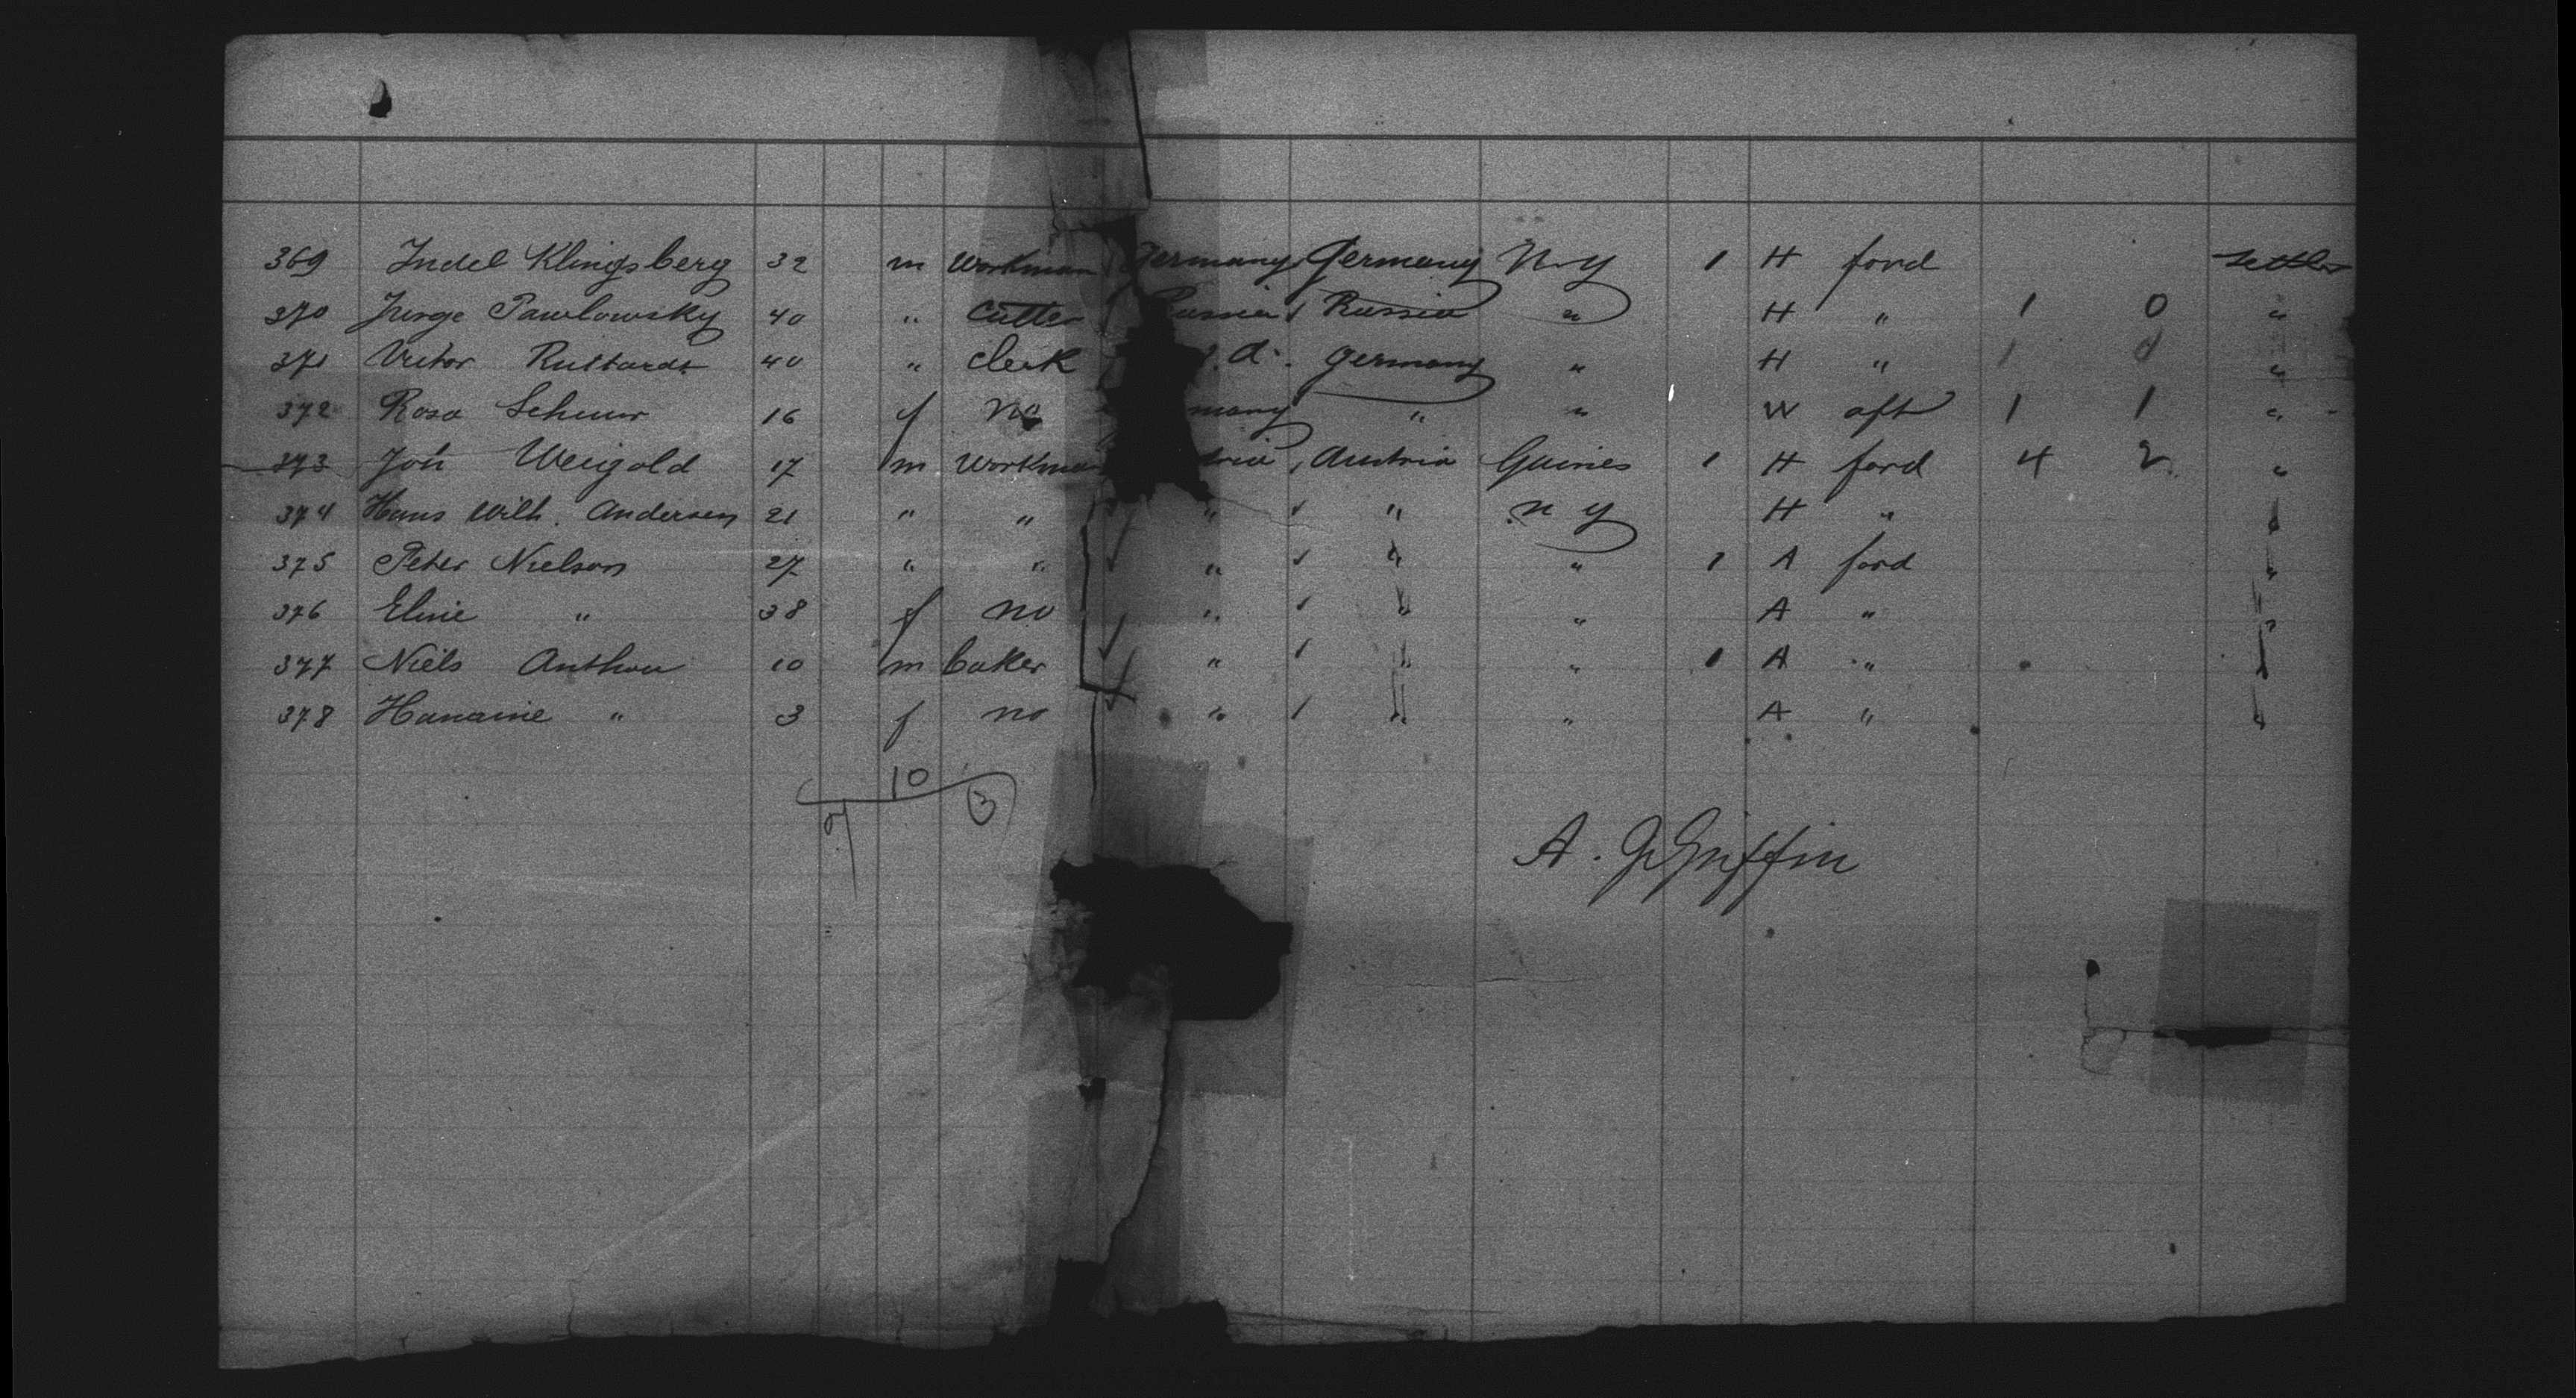 369 Indel Klingsberg 32 m Workman Germany Germany N Y 1 H ford settler
370 Jurge Pawlowsky 40 " Cutter Russia Russia " H " 1 0 "
371 Victor 40 " Clerk Germany " H " 1 0 "
372 Rosa 16 f no many " " W aft 1 1 "
373 Joh Weigold 17 m Workman tria Austria 1 H ford 4 2 "
374 Hans Wilh. Andersen 21 " " " " n y H " "
375 Peter Nielson 27 " " " " " 1 A ford "
376 Eline " 38 f no " " " A " "
377 Niels 10 m baker " " " 1 A " "
378 " 3 f no " " " A " "
10
7 3
A. Griffin